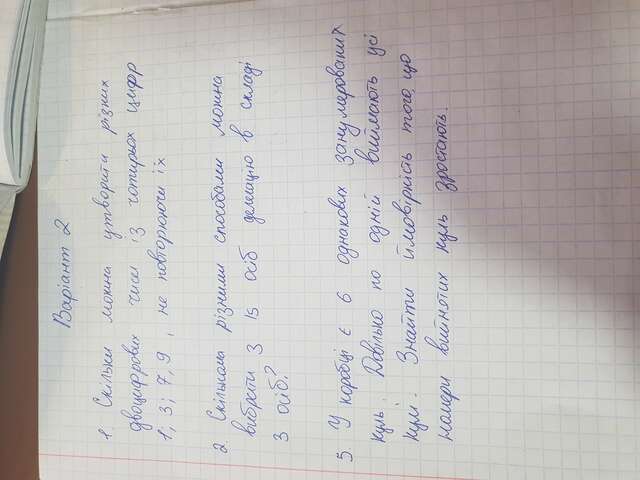 Варіант 2
1. Скільки можна утворити різних
двоцифрових чисел із чотирьох цифр
1, 3; 7, 9, не повторюючи їх
2. Скількома різними способами можна
вибрати з 15 осіб делегацію в складі
3 осіб?
5 У коробці є 6 однакових занумерованих
куль. Довільно по одній виймають усі
кулі. Знайти ймовірність того, що
номери вийнятих куль зростають.